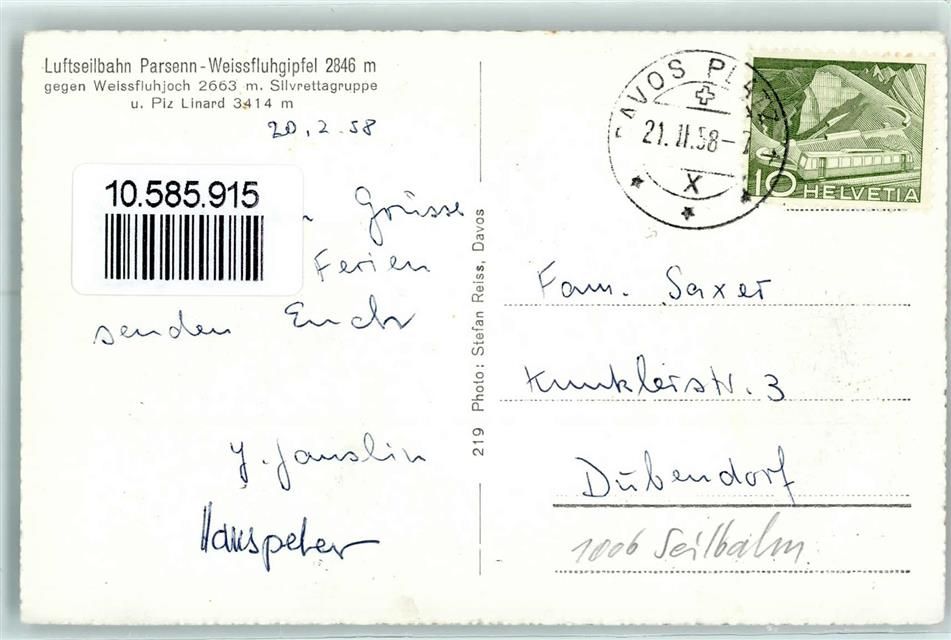 Luftseilbahn Parsenn-Weissfluhgipfel 2846 m
gegen Weissfluhjoch 2663 m. Silvrettagruppe
u. Piz Linard 3414 m
20.2.58
10.585.915
Grüsse
Ferien
senden Euch
Y. Jauslin
Hanspeter
219 Photo: Stefan Reiss, Davos
DAVOS PLATZ
21.II.58-7
X
10 HELVETIA
Fam. Saxer
Kunklerstr. 3
Dübendorf
1006 Seilbahn